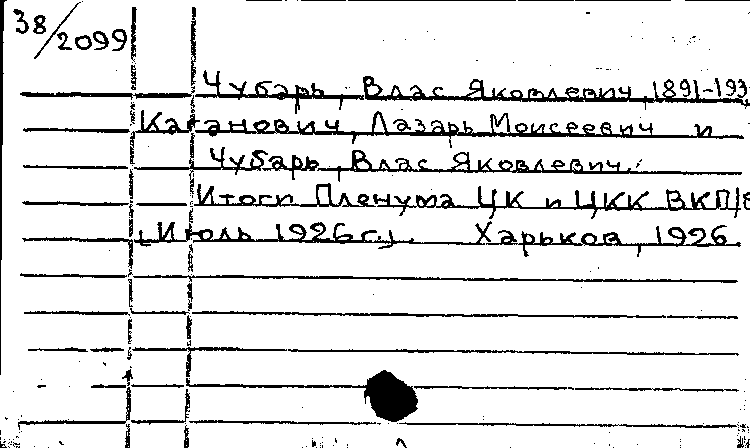 38/2099
Чубарь, Влас Яковлевич, 1891-193
Каганович, Лазарь Моисеевич и
Чубарь, Влас Яковлевич.
Итоги Пленума ЦК и ЦКК ВКП/б
[Июль 1926 г.]. Харьков, 1926.